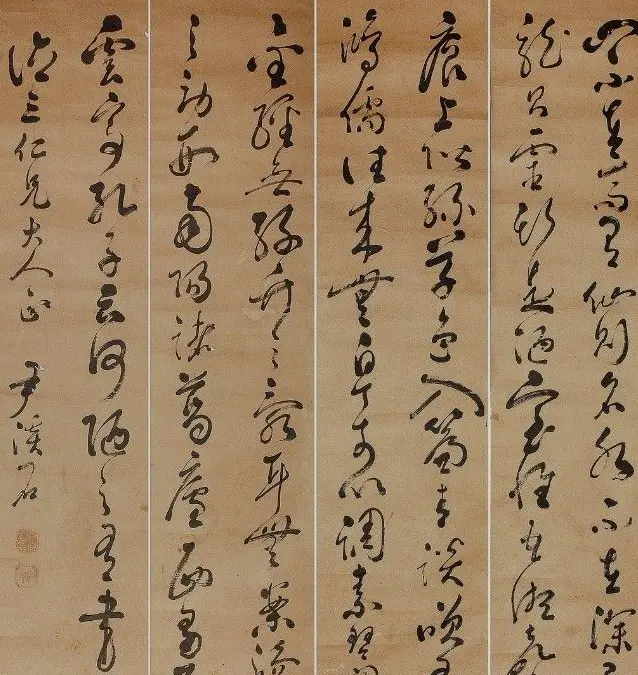 山不在高有仙則名水不在深
龍則靈斯是陋室惟吾德馨
痕上階綠草色入簾青談笑有
鴻儒往來無白丁可以調素琴閱
金經無絲竹之亂耳無案牘
之勞形南陽諸葛廬西蜀
雲亭孔子云何陋之有 書
三仁兄大人正 尹溪石